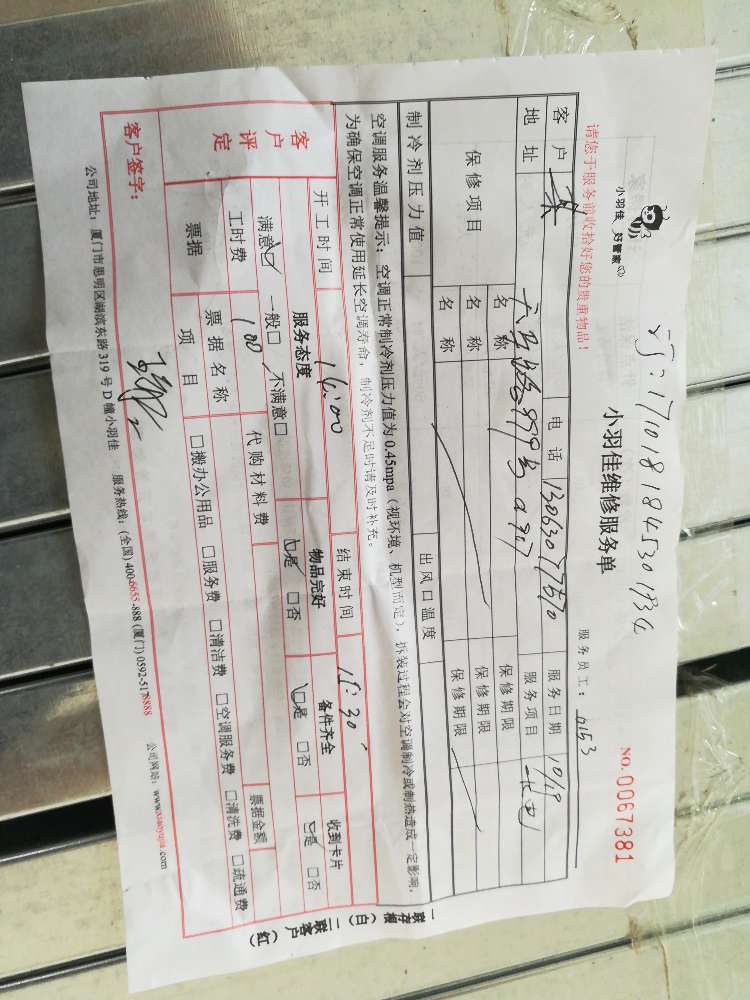 小羽佳 好管家
1710181845301934
小羽佳维修服务单
服务员工：0153
NO. 0067381
请您于服务前收拾好您的贵重物品！
客户 电话 13063077570 服务日期 10/19
地址 服务项目
保修项目 名称 保修期限
名称 保修期限
名称 保修期限
制冷剂压力值 出风口温度
空调服务温馨提示：空调正常制冷剂压力值为0.45mpa（视环境、机型而定），拆装过程会对空调制冷或制热造成一定影响，
为确保空调正常使用延长空调寿命，制冷剂不足时请及时补充。
开工时间 结束时间 15:30
客户评定 服务态度 物品完好 备件齐全 收到卡片
满意☑ 一般□ 不满意□ ☑是 □否 ☑是 □否 ☑是 □否
工时费 100 代购材料费
票据 票据名称 票据金额
项目 □搬办公用品 □服务费 □清洁费 □空调服务费 □清洗费 □疏通费
客户签字：
公司地址：厦门市思明区湖滨东路319号D幢小羽佳 服务热线：(全国) 400-6655-888 (厦门) 0592-5178888 公司网站：www.xiaoyujia.com
一联存根（白） 二联客户（红）